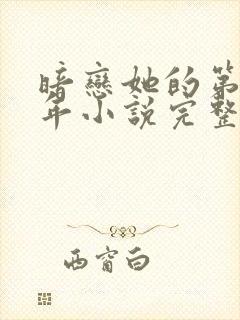 暗戀她的第
年小説完整
西窗白